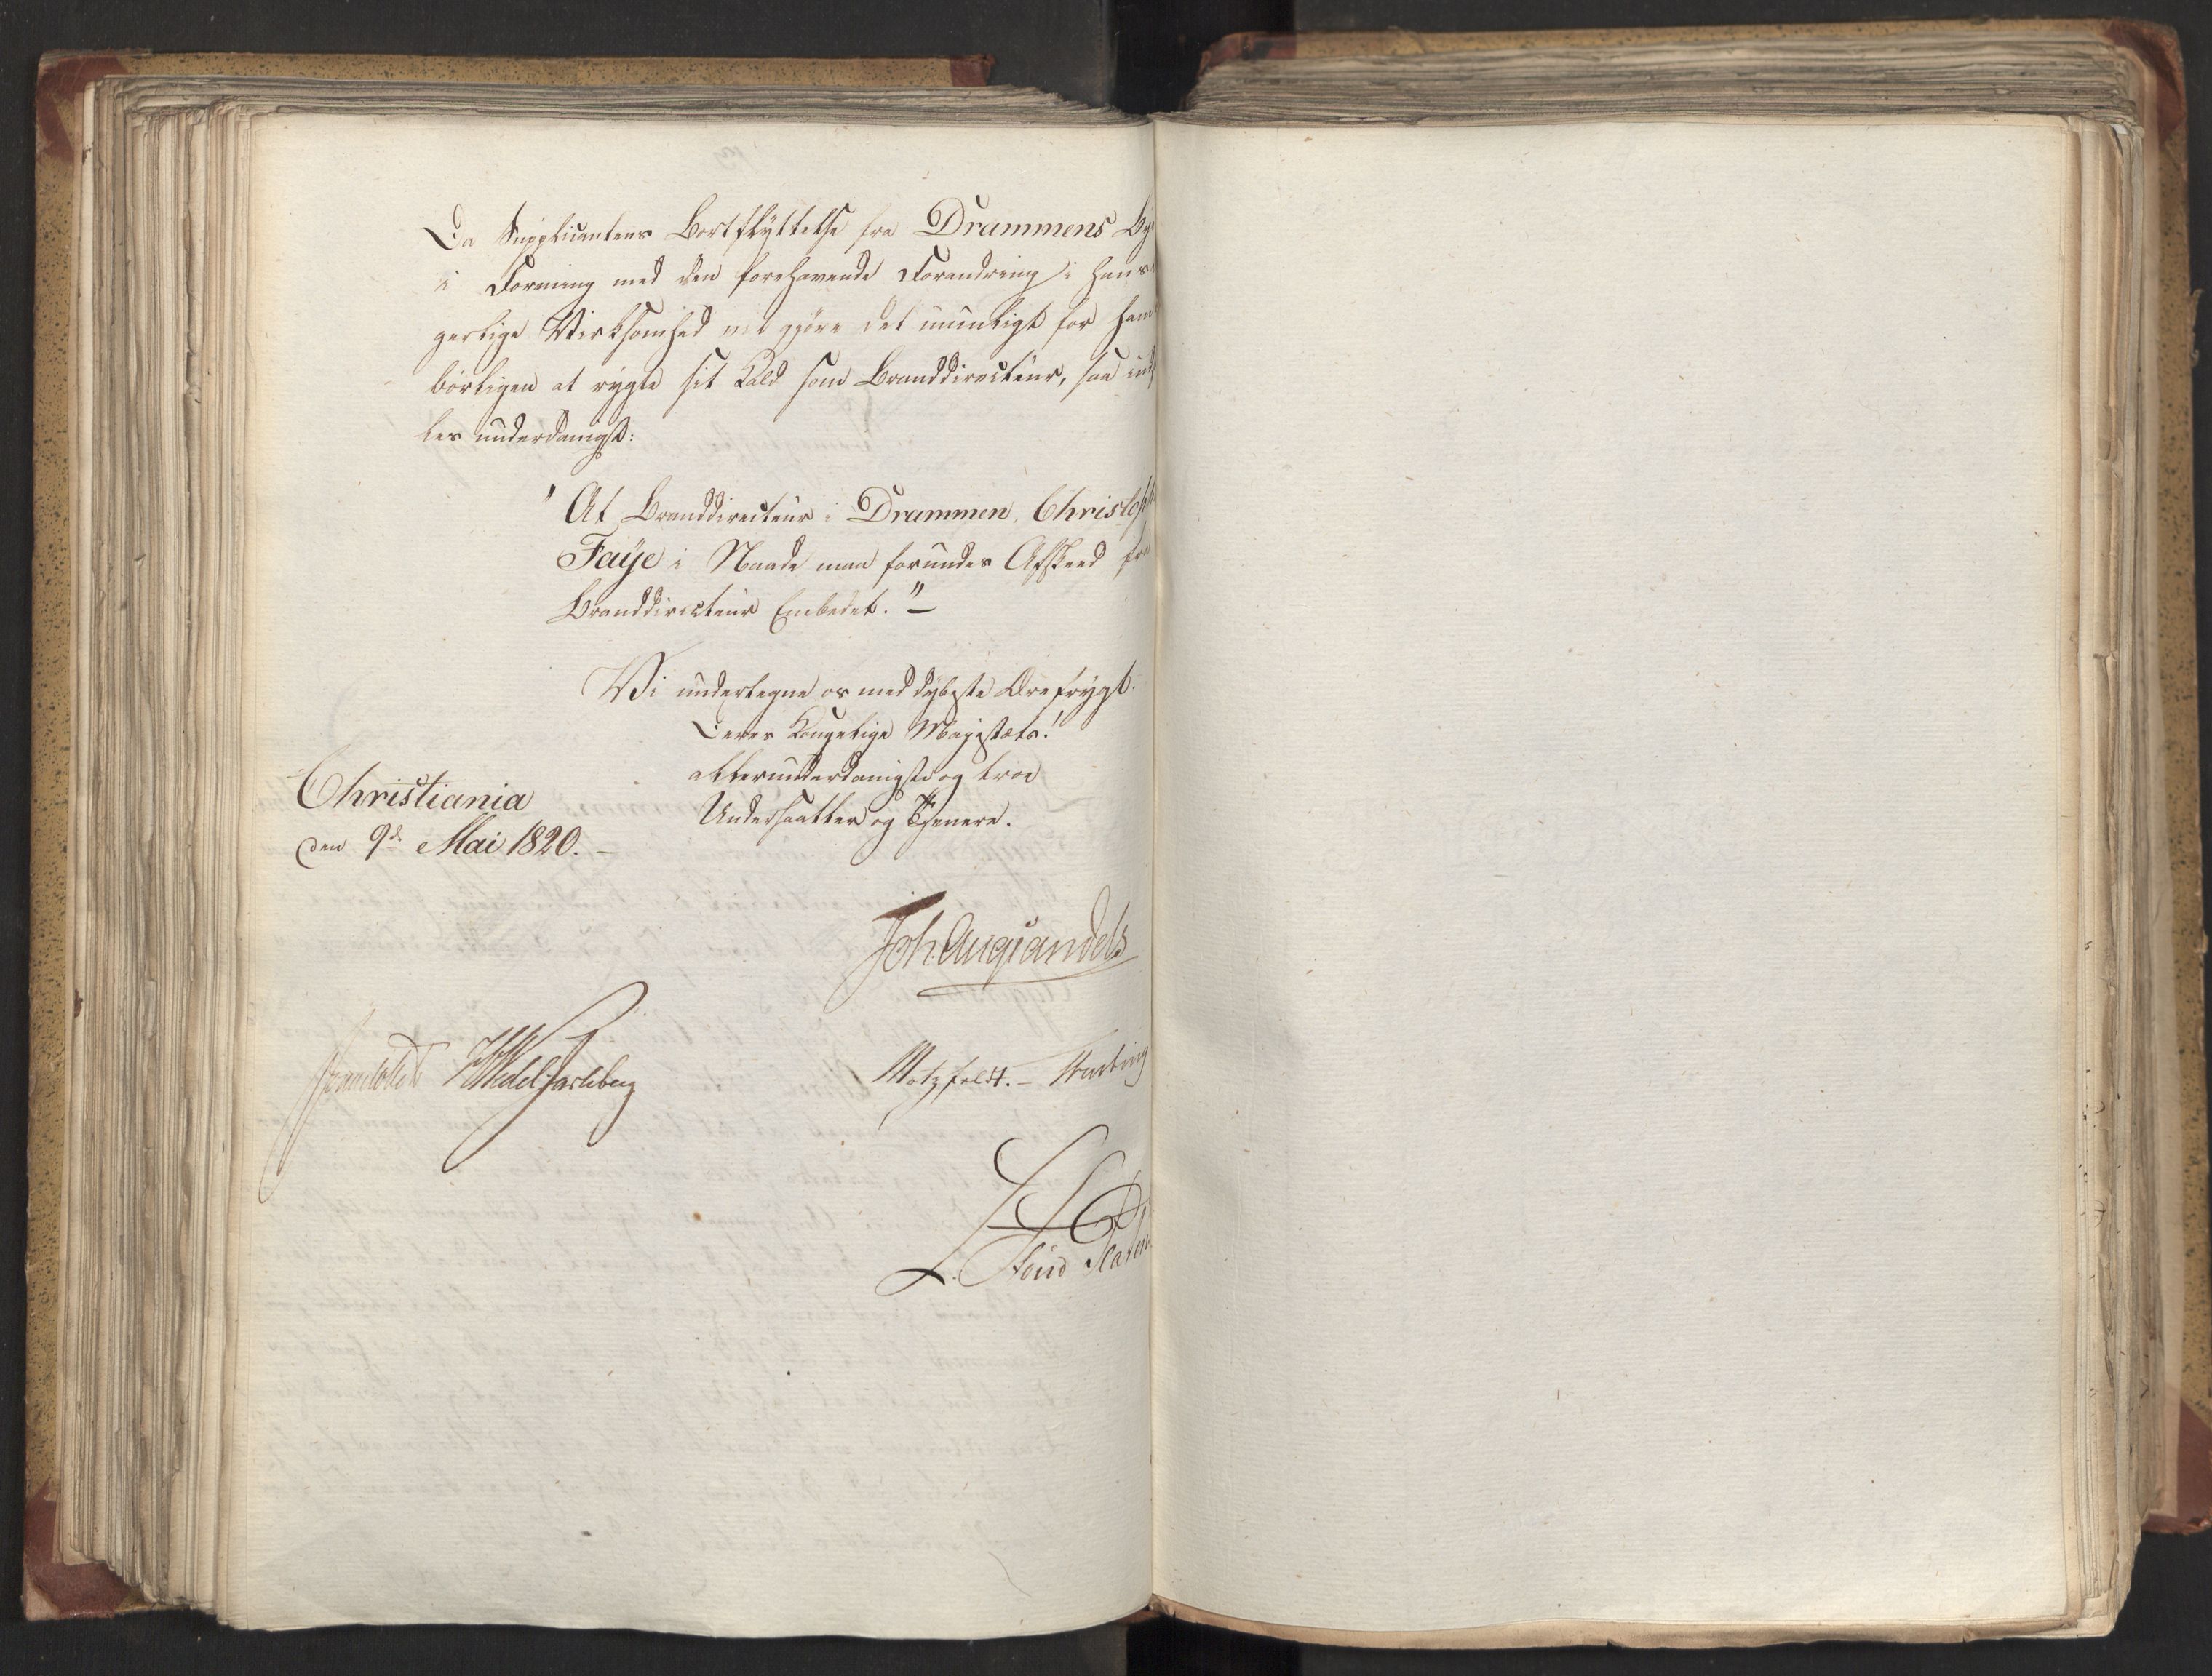 Da Supplicantens Bortflyttelse fra Drammens By
i Forening med den forehavende Forandring i hans
gerlige Virksomhed vil gjöre det umuligt for ham
börligen at rygte sit Kald som Branddirecteur, saa ind
les underdanigst:
"At Branddirecteur i Drammen, Christoph
Faÿe i Naade maa forundes Afskeed fra
Branddirecteur Embedet."—
Vi undertegne os med dybeste Ærefrygt.
Deres Kongelige Majestæts!
allerunderdanigste og troe
Undersaatter og Tjenere.
Christiania
den 9de Mai 1820. —
Joh. Aug. Sandels
Sommerhielm HWedel Jarlsberg
Motzfeldt. – Krebting